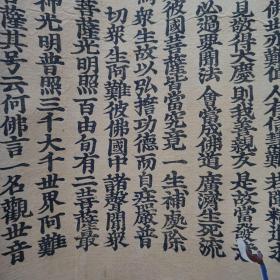 見敬得大慶 則我善親友 是故當發
必過要聞法 會當成佛道 廣濟生死流
彼國菩薩皆當究竟一生補處除
為眾生故以弘誓功德而自莊嚴普
切眾生阿難彼佛國中諸聲聞眾
菩薩光明照百由旬有二菩薩最
神光明普照三千大千世界阿難
菩薩其号云何佛言一名觀世音